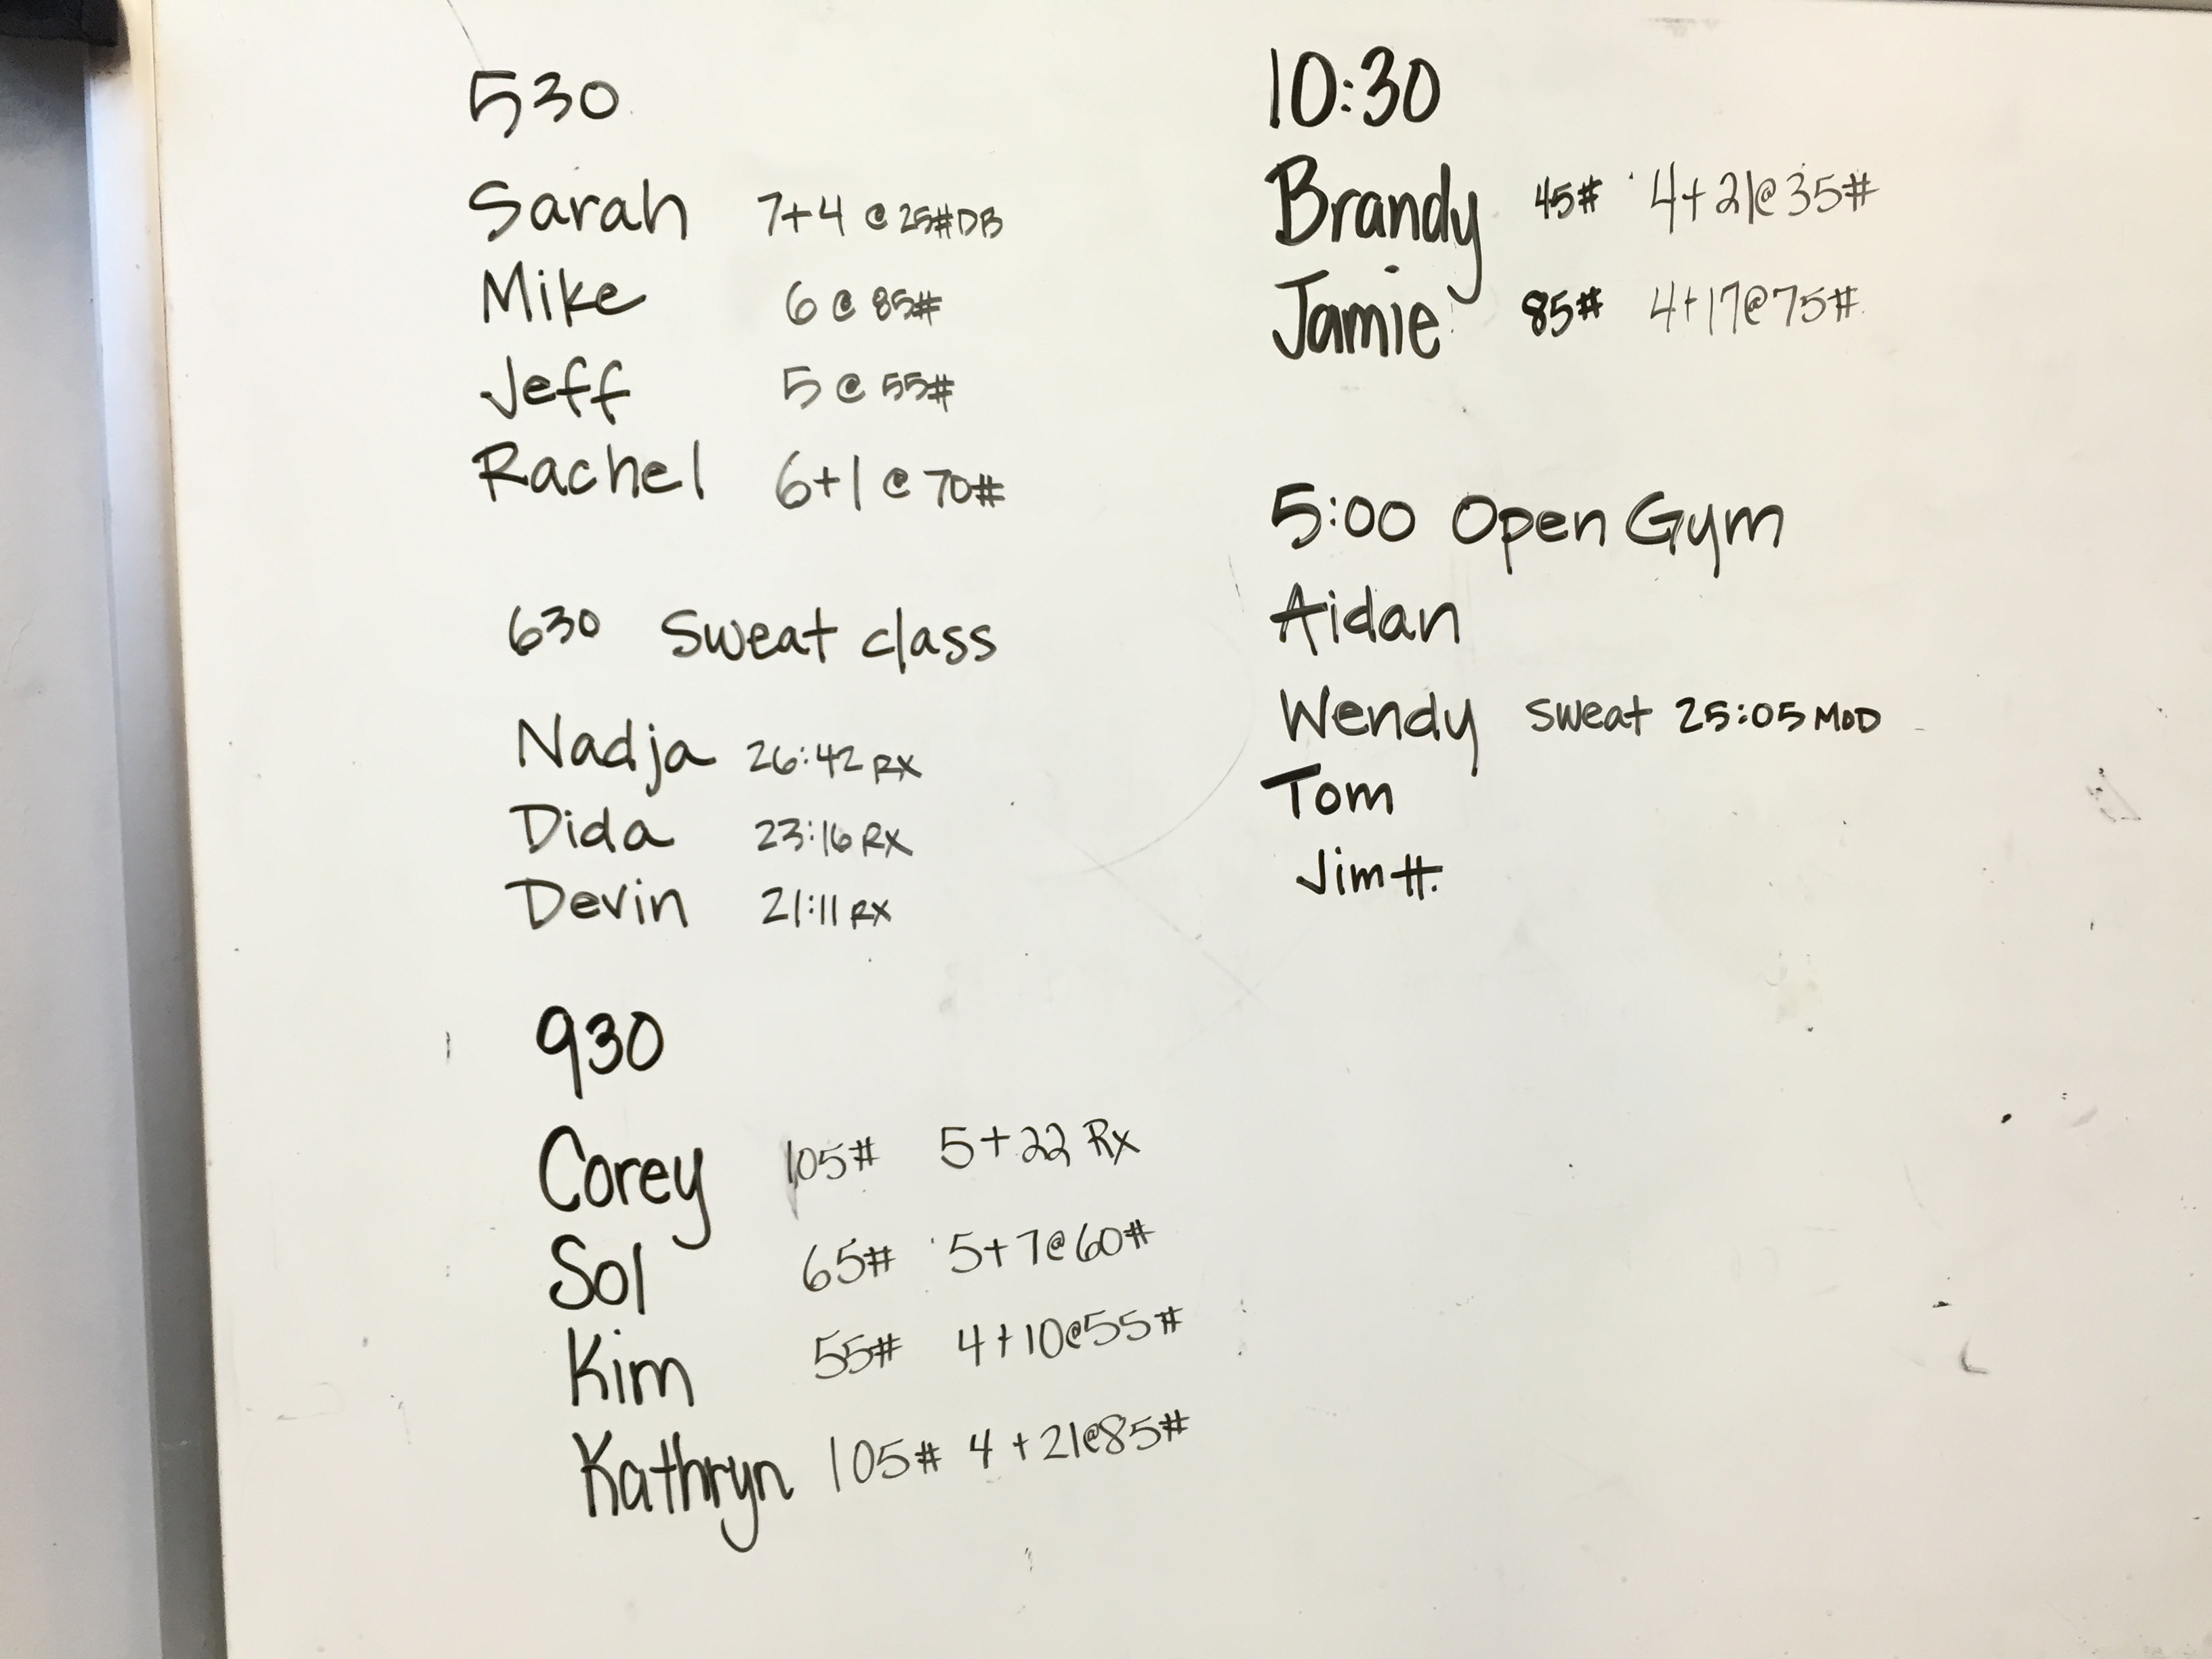 530
Sarah 7+4 @ 25#DB
Mike 6 @ 85#
Jeff 5 @ 55#
Rachel 6+1 @ 70#
630 Sweat class
Nadja 26:42 RX
Dida 23:16 RX
Devin 21:11 RX
930
Corey 105# 5+22 Rx
Sol 65# 5+7@60#
Kim 55# 4+10@55#
Kathryn 105# 4+21@85#
10:30
Brandy 45# 4+21@35#
Jamie 85# 4+17@75#
5:00 Open Gym
Aidan
Wendy sweat 25:05 MOD
Tom
Jim H.